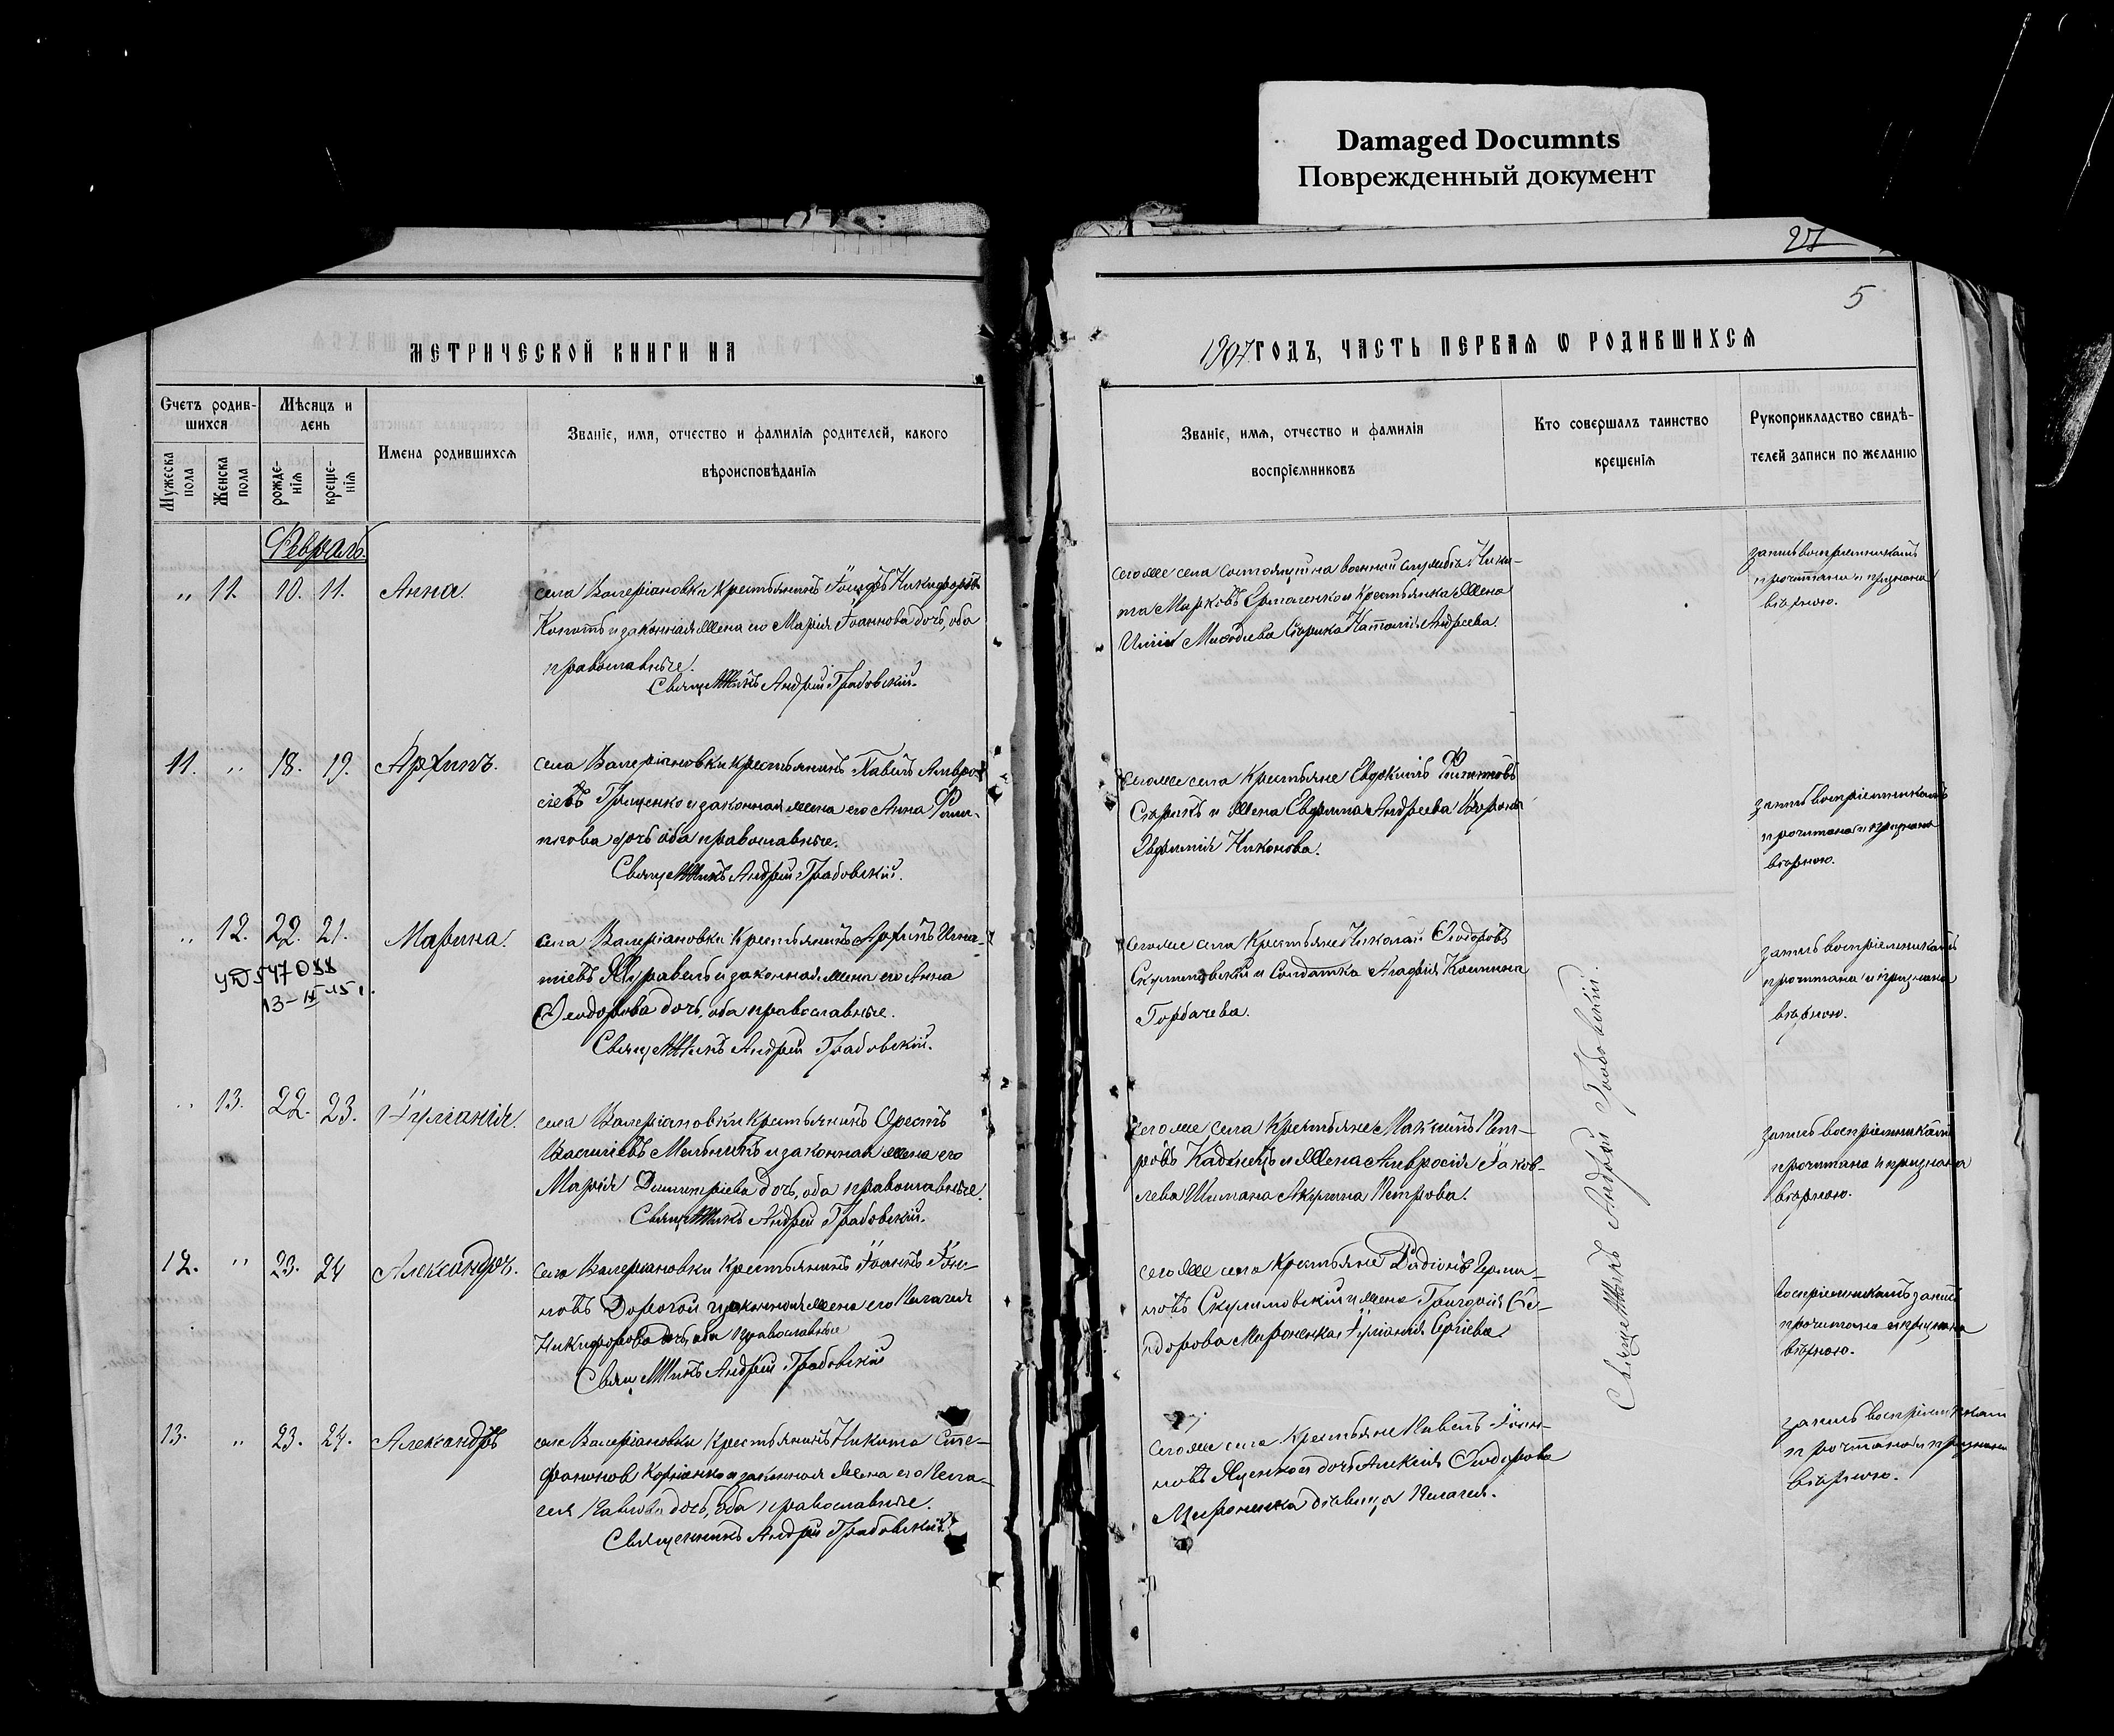 Damaged Documnts
Поврежденный документ
27
5
МЕТРИЧЕСКОЙ КНИГИ НА
1907 ГОДЪ, ЧАСТЬ ПЕРВАЯ Ѡ РОДИВШИХСЯ
Счетъ родив-
шихся
Мужеска
пола
Женска
пола
Мѣсяцъ и
день
рожде-
нія
креще-
нія
Имена родившихся
Званіе, имя, отчество и фамилія родителей, какого
вѣроисповѣданія
Званіе, имя, отчество и фамилія
воспріемниковъ
Кто совершалъ таинство
крещенія
Рукоприкладство свидѣ-
телей записи по желанію
Февраль.
„ 11. 10. 11. Анна.
села Валеріановки крестьянинъ Никифоровъ
и законная жена его Марія Іоаннова дочь, оба
православные.
Священникъ Андрей Грабовскій.
сего же села состоящій на военной службѣ Ники-
та Марковъ Ермоленко и крестьянка жена
Наталія Андреева.
запись воспріемникамъ
прочитана и признана
вѣрною.
11. „ 18. 19. Архипъ.
села Валеріановки крестьянинъ Павелъ Амвро-
сіевъ Гриценко и законная жена его Анна Фили-
пова дочь оба православные.
Священникъ Андрей Грабовскій.
сего же села крестьяне Евдокимъ Филиповъ
Скрипкъ и жена Андреева
Евфимія Никонова.
запись воспріемникамъ
прочитана и признана
вѣрною.
„ 12. 22. 21. Марина.
547088
13-IV-15
села Валеріановки крестьянинъ Архипъ Игна-
тіевъ Журавель и законная жена его Анна
Ѳеодорова дочь, оба православные.
Священникъ Андрей Грабовскій.
сего же села крестьяне Николай Ѳеодоровъ
Скулимовскій и солдатка Агафія
Горбачева.
запись воспріемникамъ
прочитана и признана
вѣрною.
„ 13. 22. 23. Іуліанія.
села Валеріановки крестьянинъ Орестъ
Васильевъ Мельникъ и законная жена его
Марія Димитріева дочь, оба православные.
Священникъ Андрей Грабовскій.
сего же села крестьяне Максимъ Пет-
ровъ Каденецъ и жена Амвросія Іаков-
лева Шимана Акулина Петрова.
запись воспріемникамъ
прочитана и признана
вѣрною.
12. „ 23. 24 Александръ.
села Валеріановки крестьянинъ Іоаннъ Іоан-
новъ Дорогой и законная жена его Пелагея
Никифорова дочь, оба православные
Священникъ Андрей Грабовскій
сего же села крестьяне Родіонъ
Скулимовскій и жена Григорія Ѳе-
одорова Мироненка Іуліанія Сергіева.
воспріемникамъ запись
прочитана и признана
вѣрною.
13. „ 23. 24. Александръ
села Валеріановки крестьянинъ Никита Сте-
фановъ Корніенко и законная жена его Пела-
гея Павлова дочь, оба православные.
Священникъ Андрей Грабовскій.
сего же села крестьяне Павелъ Іоан-
новъ Яценко и дочь Алексія Ѳеодорова
Мироненка дѣвица Пелагея.
запись воспріемникам
прочитана и признана
вѣрною.
Священникъ Андрей Грабовскій.